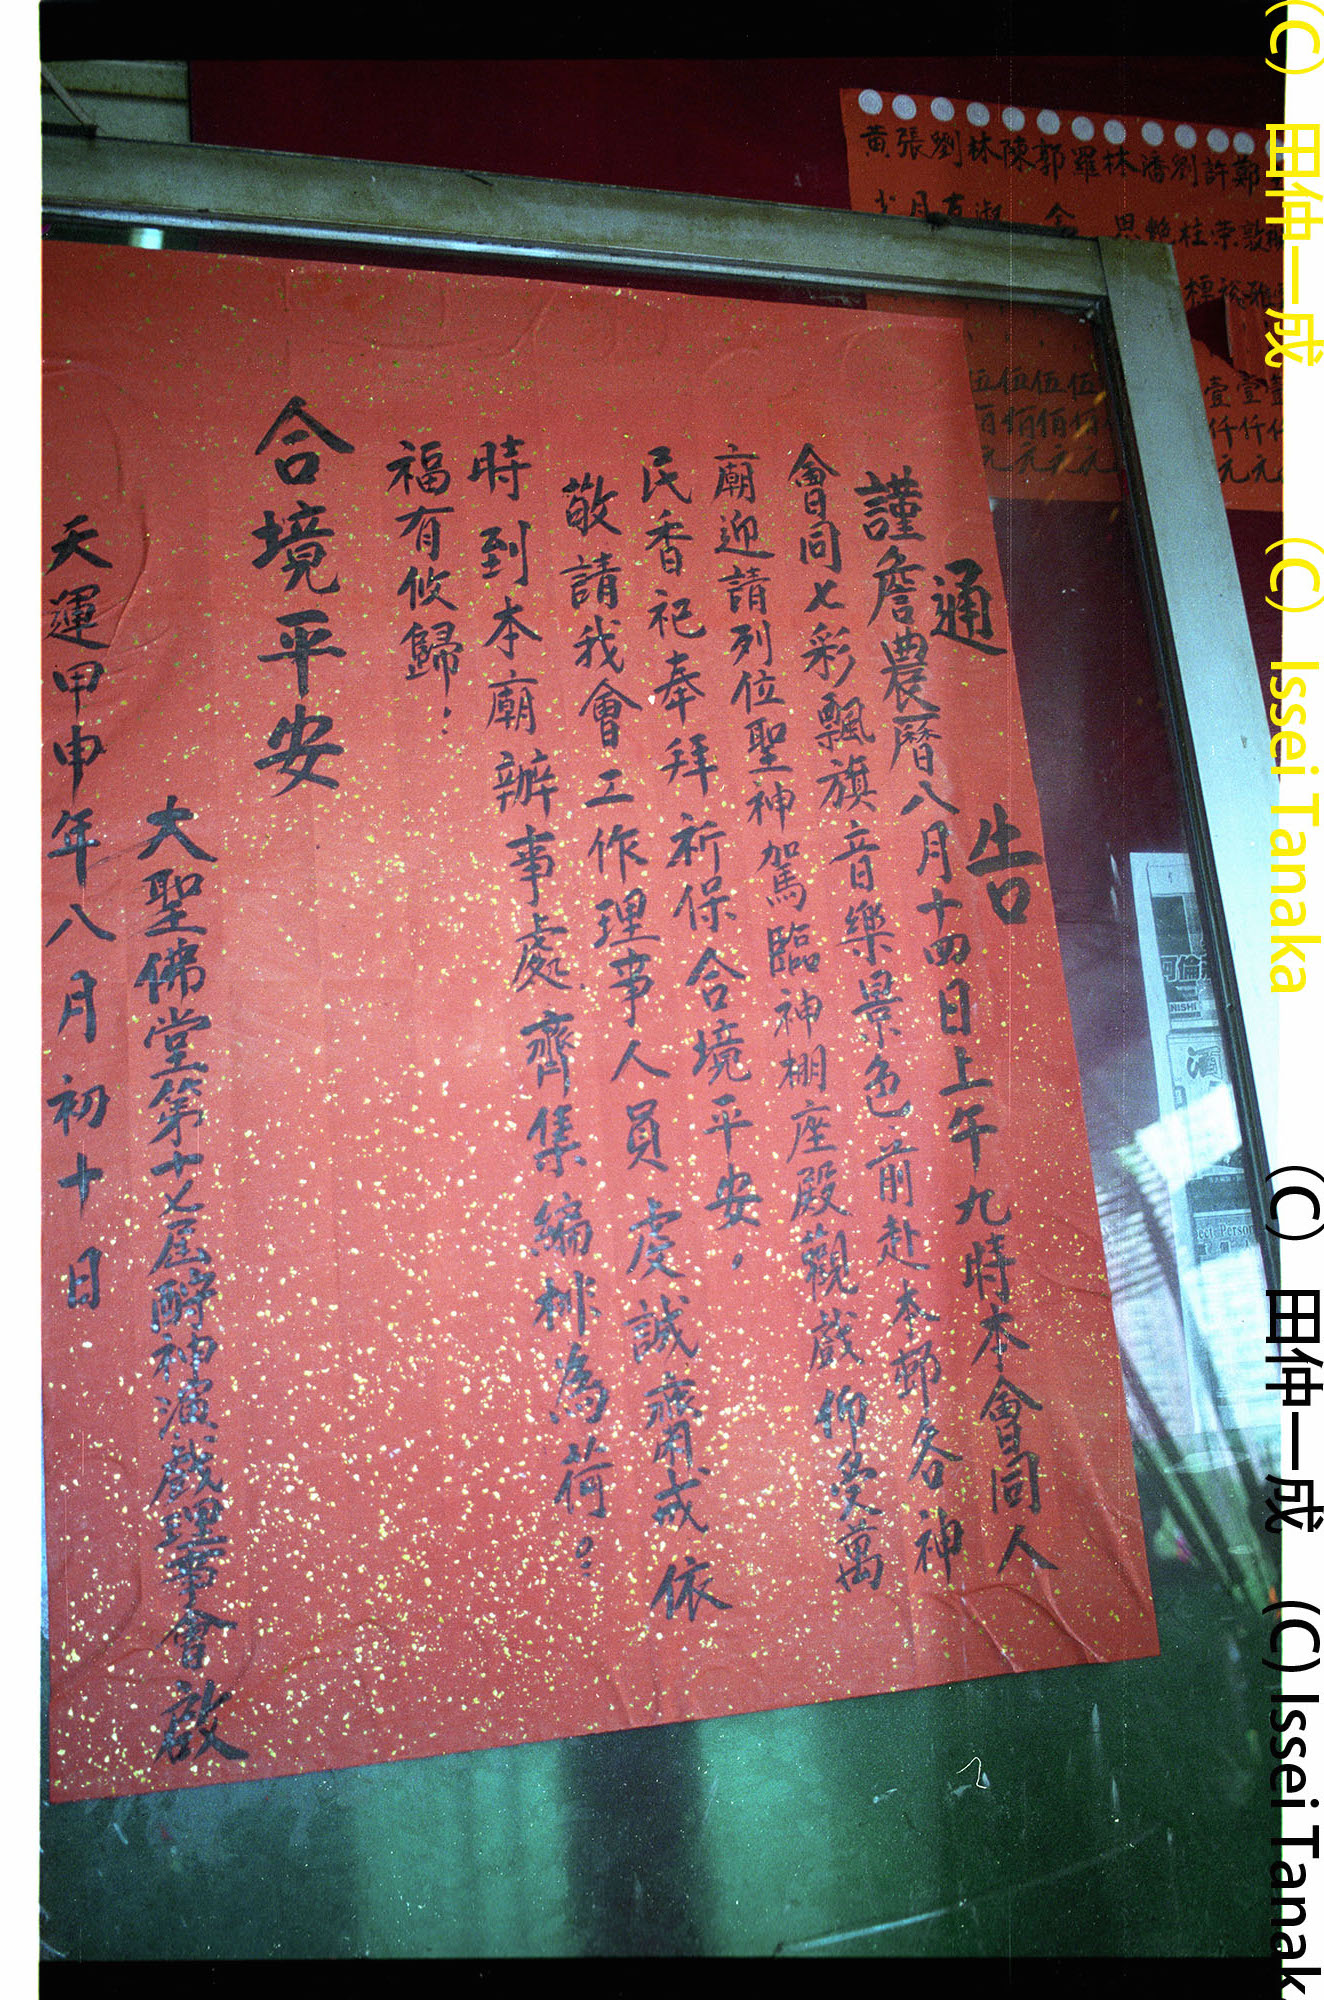 通告
謹詹農曆八月十四日上午九時本會同人
會同七彩飄旗音樂景色前赴本鄉各神
廟迎請列位聖神駕臨神棚座殿觀戲仰受萬
民香祀奉拜祈保合境平安，
敬請我會工作理事人員虔誠齋戒依
時到本廟辦事處齊集編排為荷。
福有攸歸！
合境平安
大聖佛堂第十七屆酧神演戲理事會啟
天運甲申年八月初十日
黃張劉林陳郭羅林潘劉許鄭
伍佰元
伍佰元
伍佰元
壹仟元
壹仟元
NISHI
酒
(C) 田仲一成 (C) Issei Tanaka
(C) 田仲一成 (C) Issei Tanak